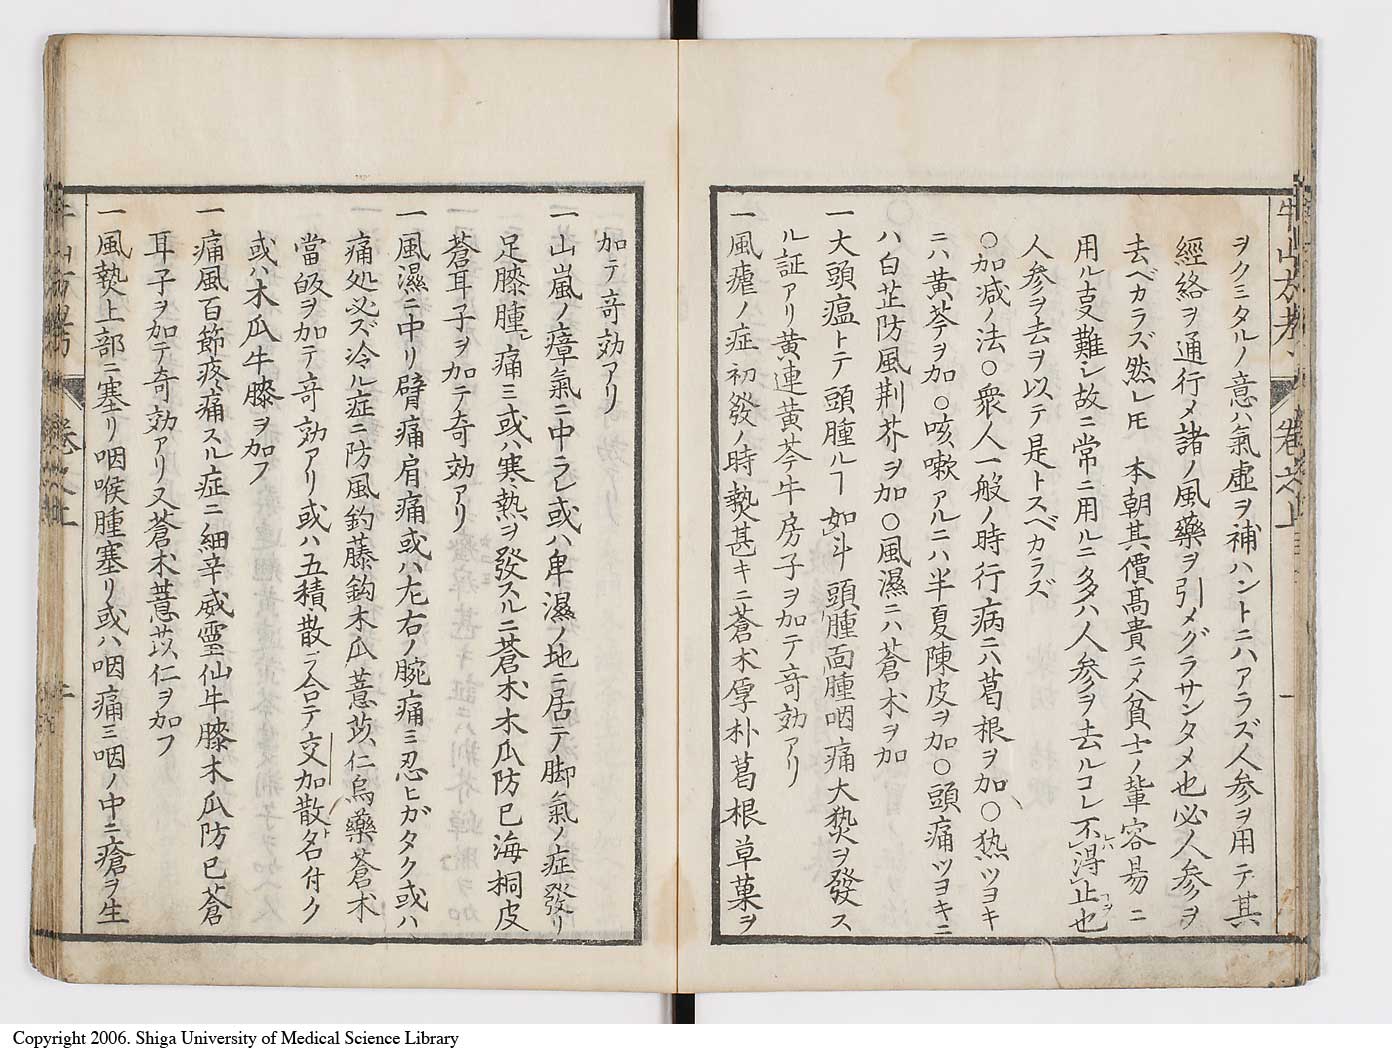 ヲクミタルノ意ハ氣虚ヲ補ハントニハアラズ人参ヲ用テ其
經絡ヲ通行メ諸ノ風藥ヲ引メグラサンタメ也必人参ヲ
去ベカラズ然レ𪜈 本朝其價高貴ニメ貧士ノ輩容昜ニ
用ル叓難シ故ニ常ニ用ルニ多ハ人参ヲ去ルコレ不得止也
人参ヲ去ヲ以テ是トスベカラズ
○加减ノ法○衆人一般ノ時行病ニハ葛根ヲ加○𤍠ツヨキ
ニハ黄芩ヲ加○咳嗽アルニハ半夏陳皮ヲ加○頭痛ツヨキニ
ハ白芷防風荆芥ヲ加○風濕ニハ蒼朮ヲ加
一大頭瘟トテ頭腫ルヿ如斗頭腫面腫咽痛大𤍠ヲ發ス
ル証アリ黄連黄芩牛房子ヲ加テ竒効アリ
一風瘧ノ症初發ノ時𤍠甚キニ蒼朮厚朴葛根草菓ヲ
加テ竒効アリ
一山嵐ノ瘴氣ニ中ラレ或ハ卑濕ノ地ニ居テ脚氣ノ症發リ
足膝腫痛ミ或ハ寒熱ヲ發スルニ蒼朮木瓜防已海桐皮
蒼耳子ヲ加テ奇効アリ
一風濕ニ中リ臂痛肩痛或ハ左右ノ腕痛ミ忍ヒガタク或ハ
痛処必ズ冷ル症ニ防風釣藤鈎木瓜薏苡仁烏藥蒼朮
當皈ヲ加テ竒効アリ或ハ五積散ニ合テ交加散ト名付ク
或ハ木瓜牛膝ヲ加フ
一痛風百節疼痛スル症ニ細辛威靈仙牛膝木瓜防已蒼
耳子ヲ加テ奇効アリ又蒼朮薏苡仁ヲ加フ
一風𤍠上部ニ塞リ咽喉腫塞リ或ハ咽痛ミ咽ノ中ニ瘡ヲ生
Copyright 2006. Shiga University of Medical Science Library